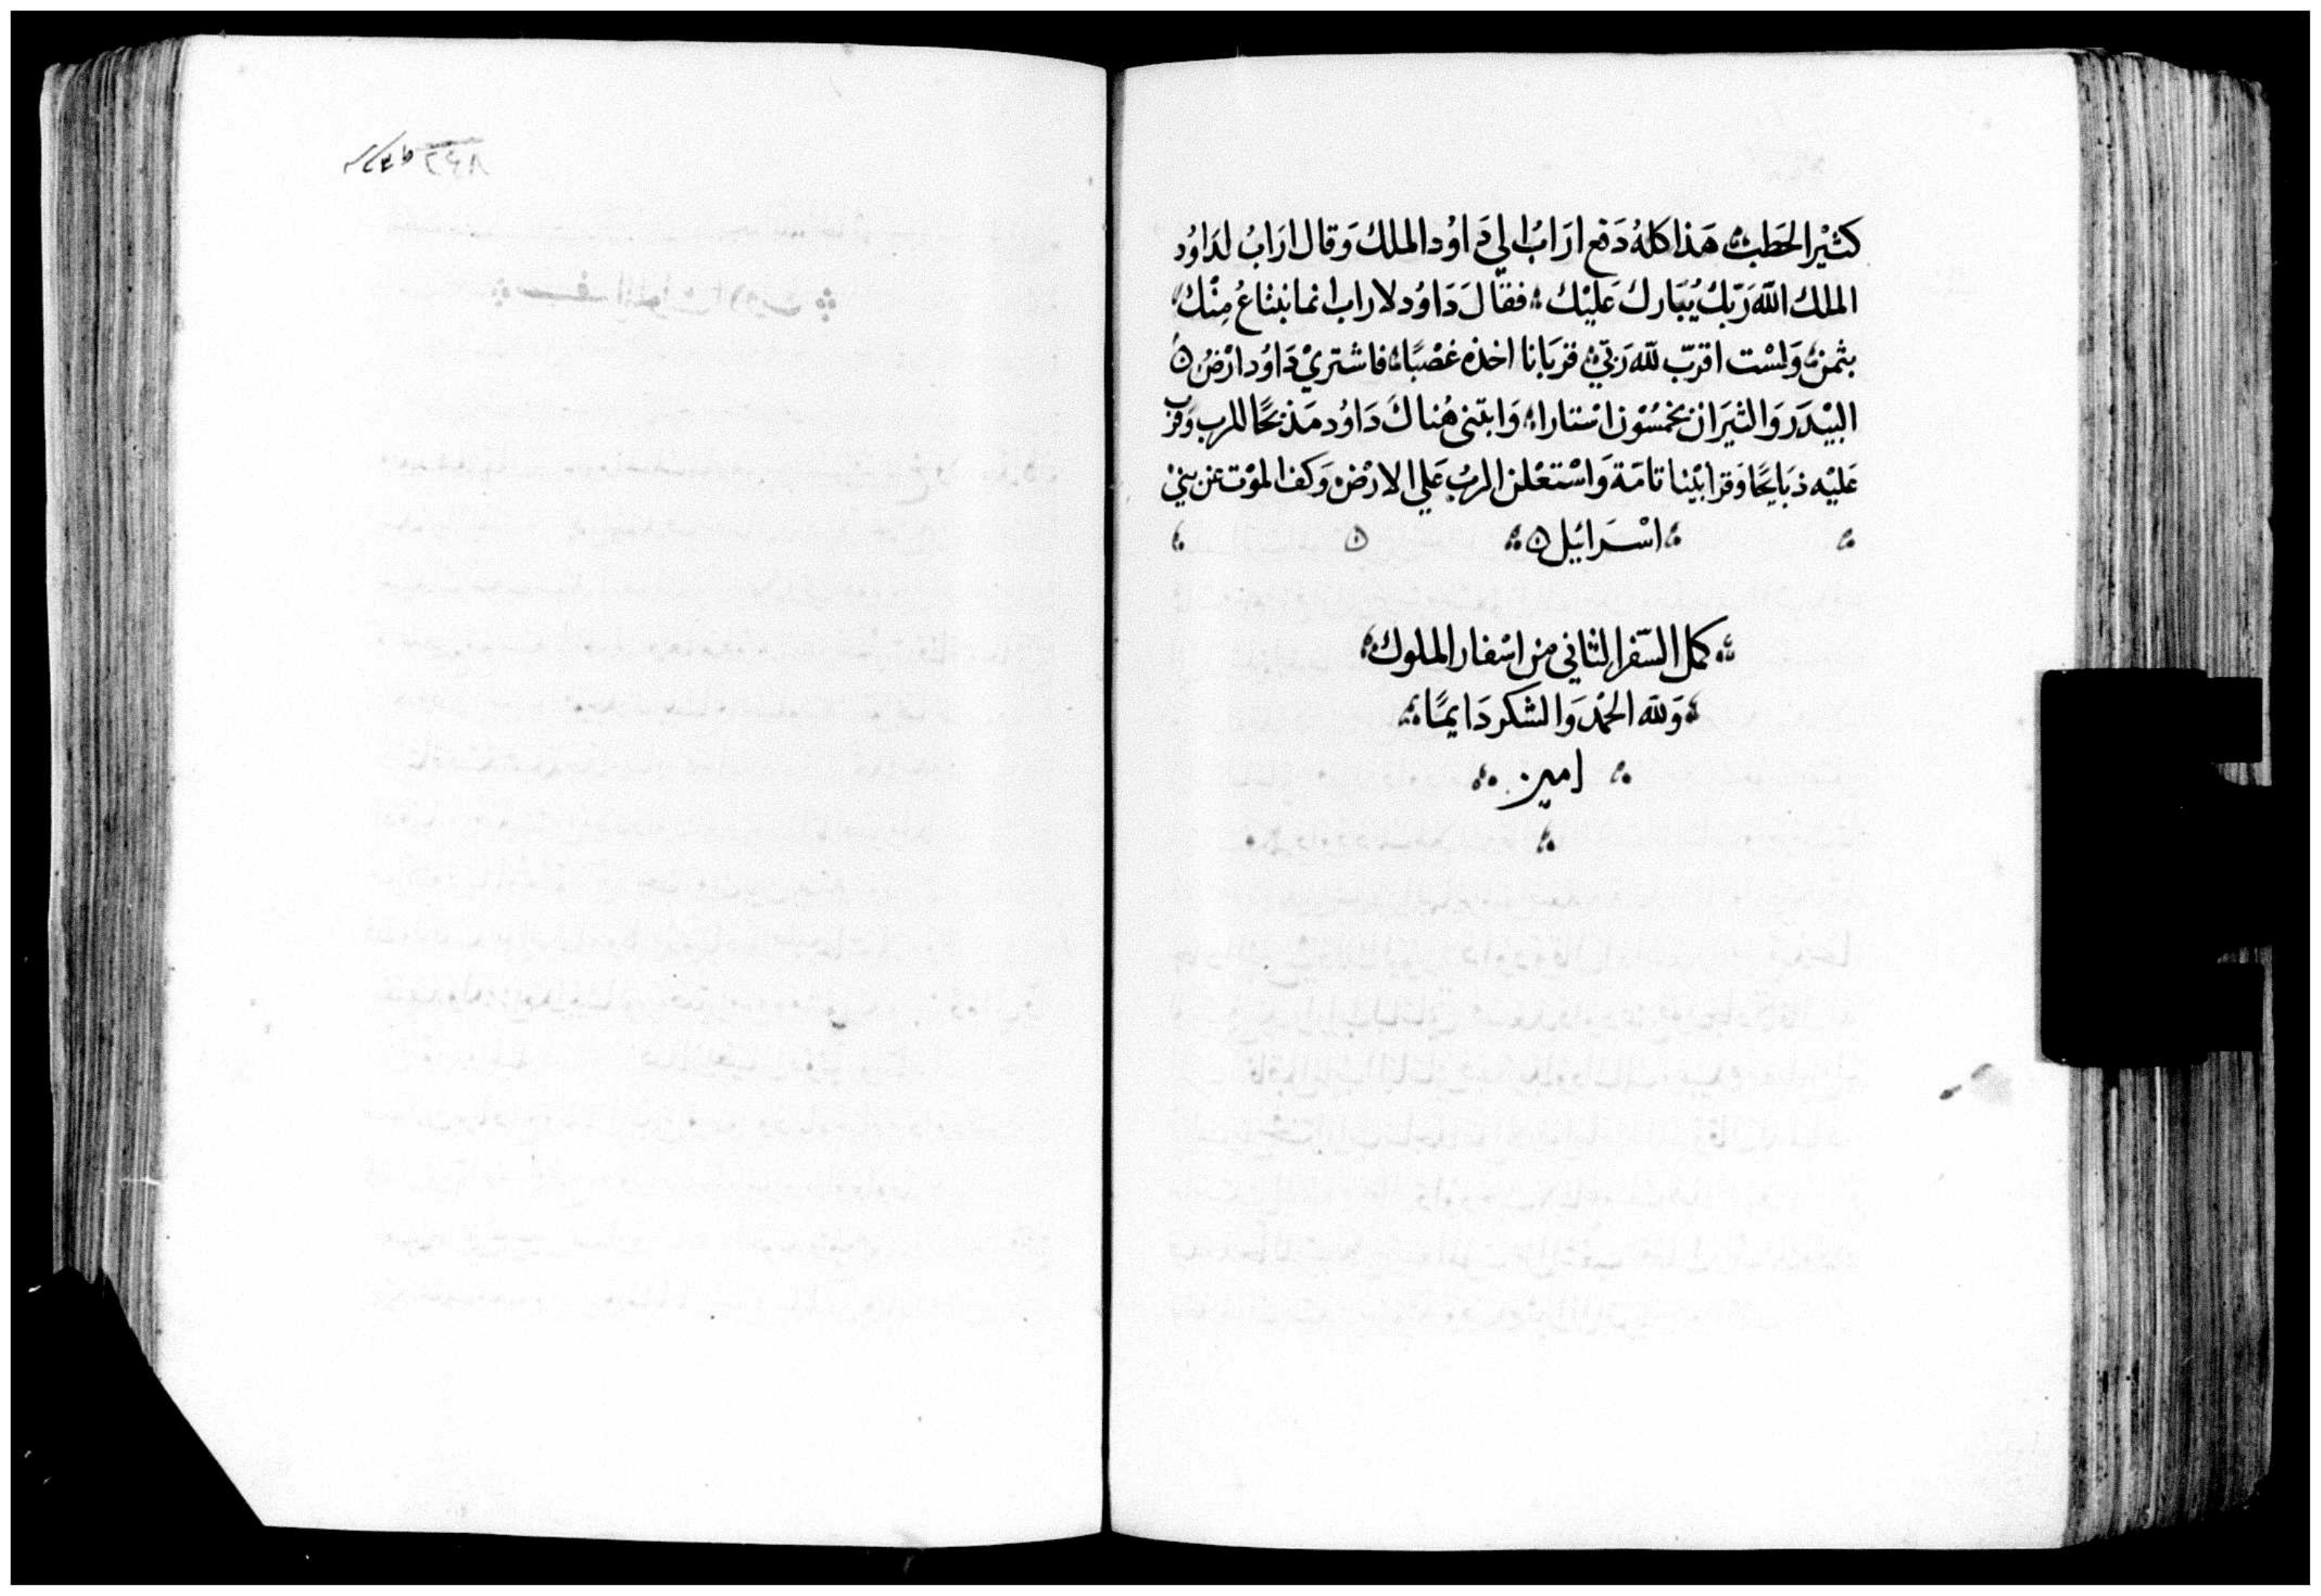 كثيْر الحَطب هَذا كلهُ دَفع ارَابُ الي دَاوُد الملك وَقال ارَابُ لدَاوُد
الملك اللّه رَبّك يُبَارك عَليْك فقالَ دَاوُد لاراب انما نبتاعُ مِنْك
بثمن وَلسْت اقرّب للّه رَبّي قربَانا اخذه غصْبًا فاشتريْ دَاوُد ارْضُ
البيْدَر وَالثيرَان بخمسُوْن اسْتارا وَابتنى هُناكَ دَاوُد مَذبَحًا للرب وَقرب
عَليْه ذبَايحًا وَقرابيْنا تامَة وَاسْتعْلن الربُ عَلي الارْض وَكف الموْت عن بنيْ
اسْرَائيل
كمل السّفر الثاني من اسْفار الملوك
وَللّه الحمْد وَالشكر دَايمًا
امين